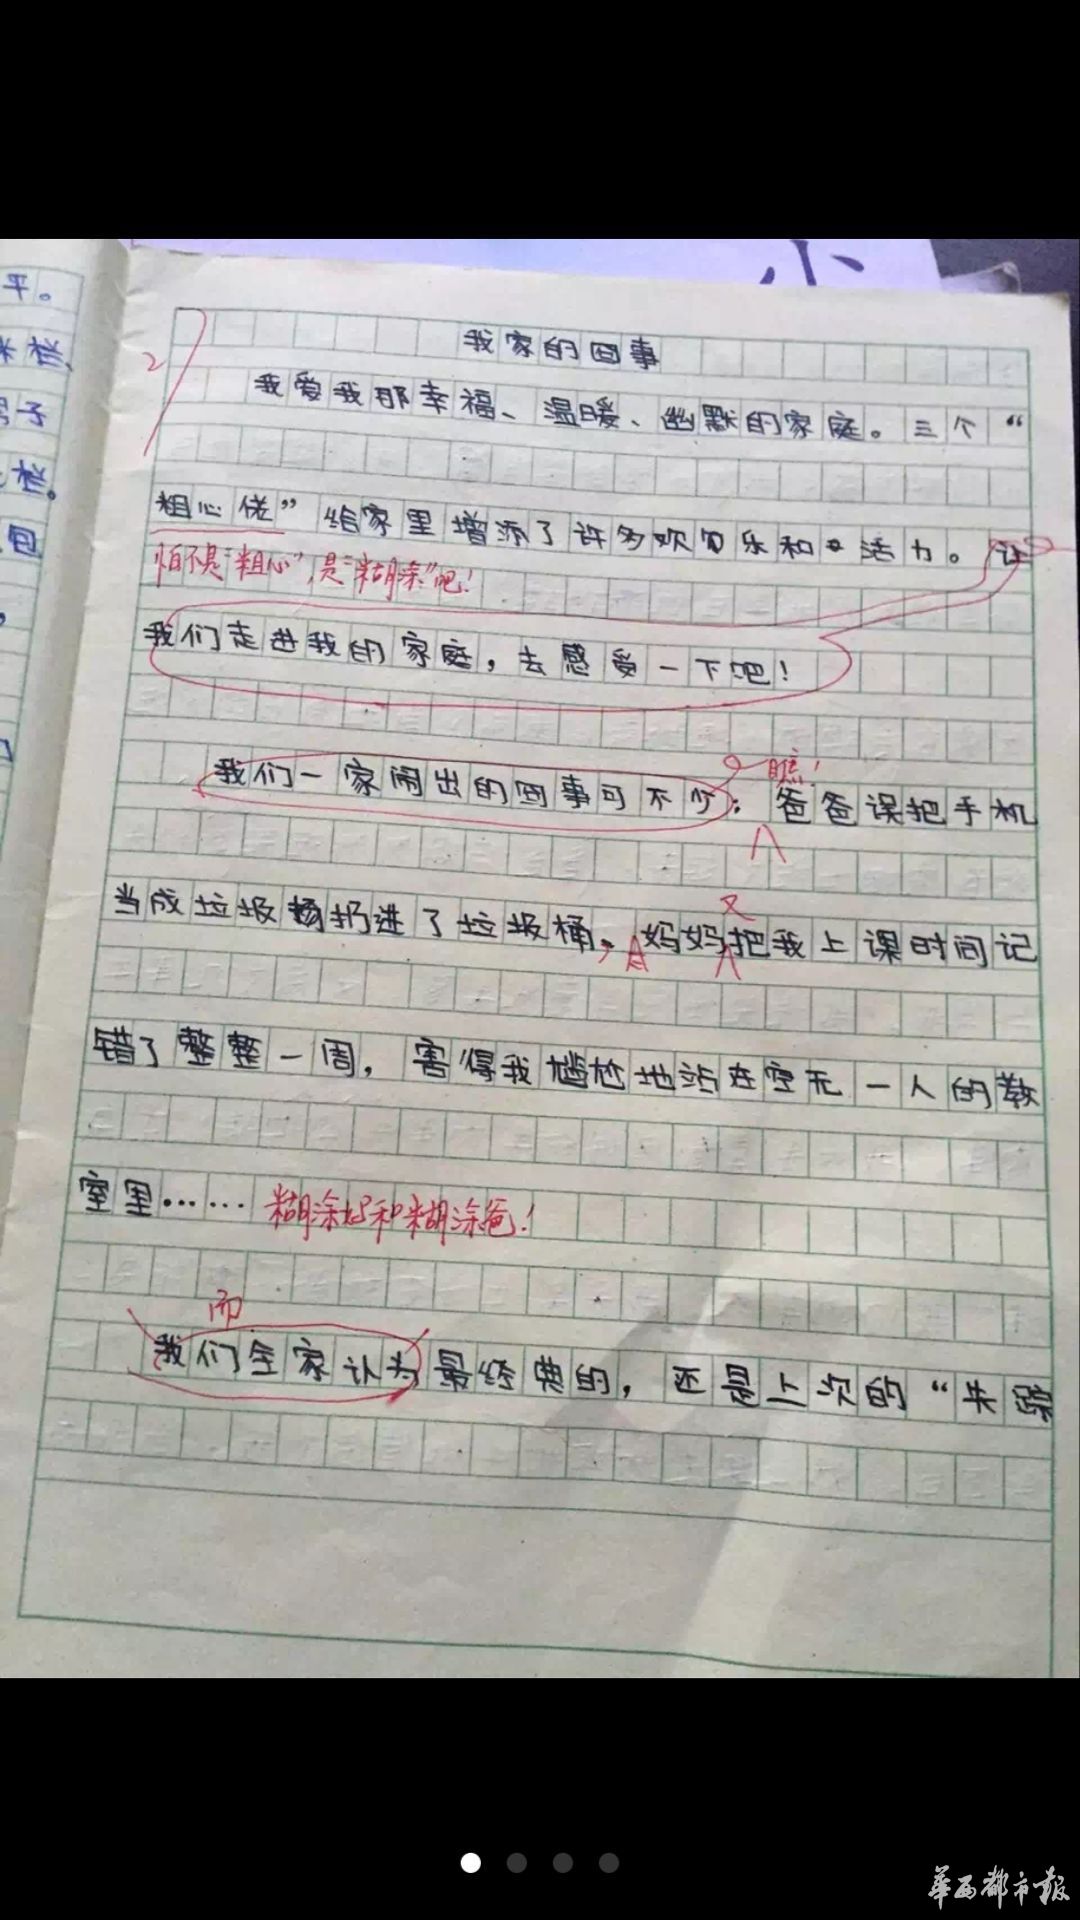 平。
栏
子
栏。
包
我家的囧事
2
我爱我那幸福、温暖、幽默的家庭。三个“
粗心佬”给家里增添了许多欢乐和活力。让
怕不是“粗心”，是“糊涂”吧！
我们走进我的家庭，去感受一下吧！
瞧！
我们一家闹出的囧事可不少：爸爸误把手机
又
当成垃圾扔进了垃圾桶，妈妈把我上课时间记
错了整整一周，害得我尴尬地站在空无一人的教
室里……糊涂妈和糊涂爸！
而
我们全家认为最经典的，还是上次的“失踪
华西都市报